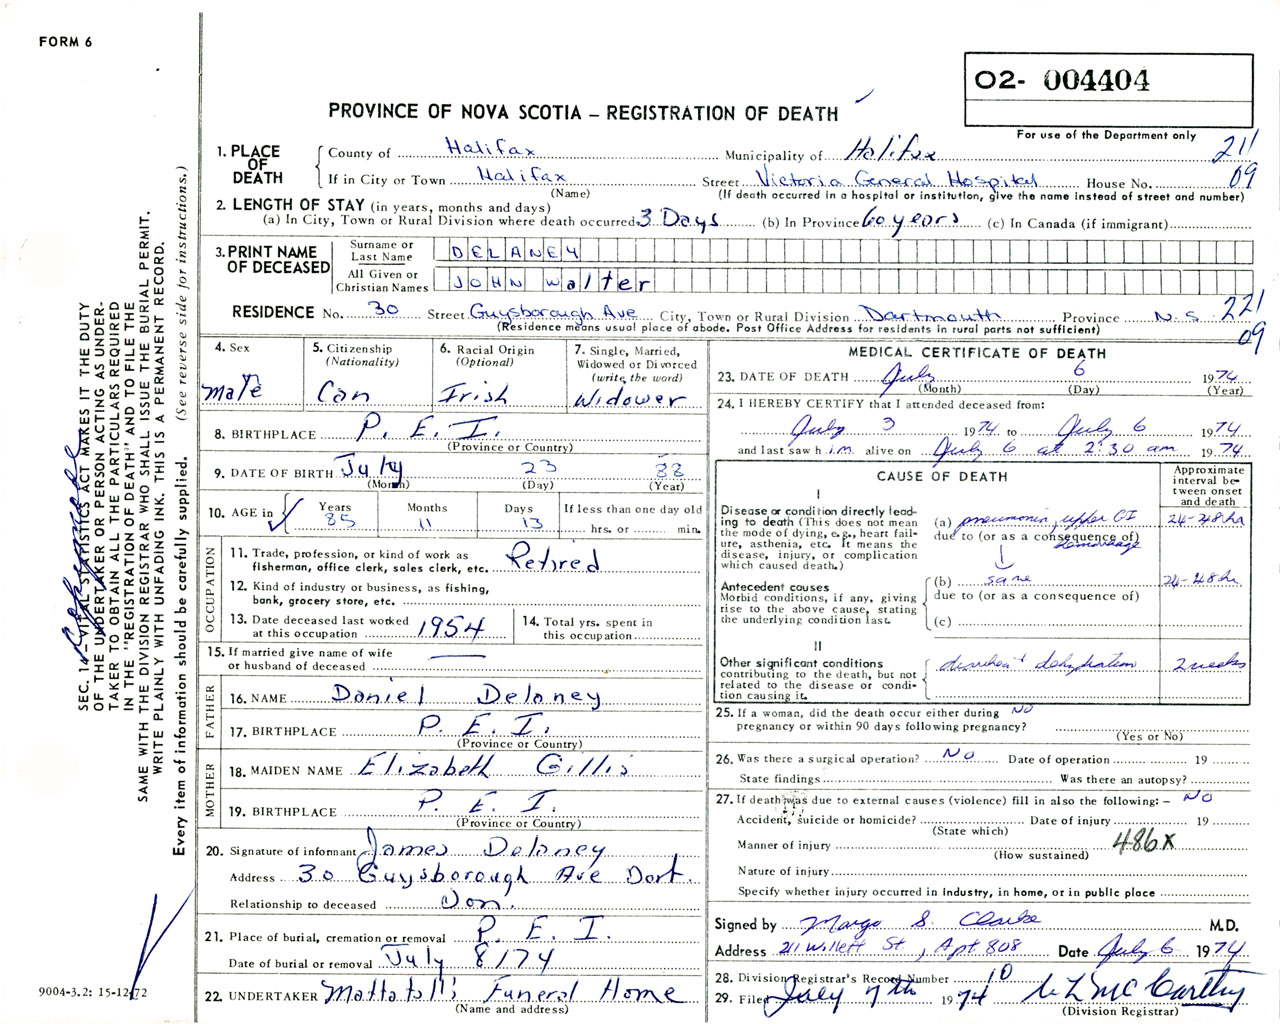 FORM 6
O2- 004404
PROVINCE OF NOVA SCOTIA – REGISTRATION OF DEATH
For use of the Department only
1. PLACE OF DEATH
County of Halifax Municipality of Halifax 211
If in City or Town Halifax Street Victoria General Hospital House No. 09
(Name) (If death occurred in a hospital or institution, give the name instead of street and number)
2. LENGTH OF STAY (in years, months and days)
(a) In City, Town or Rural Division where death occurred 3 Days (b) In Province 60 years (c) In Canada (if immigrant)
3. PRINT NAME OF DECEASED
Surname or Last Name DELANEY
All Given or Christian Names JOHN Walter
RESIDENCE No. 30 Street Guysborough Ave City, Town or Rural Division Dartmouth Province N.S. 221
(Residence means usual place of abode. Post Office Address for residents in rural parts not sufficient) 09
4. Sex
male
5. Citizenship (Nationality)
Can
6. Racial Origin (Optional)
Irish
7. Single, Married, Widowed or Divorced (write the word)
Widower
8. BIRTHPLACE P. E. I.
(Province or Country)
9. DATE OF BIRTH July 23 88
(Month) (Day) (Year)
10. AGE in Years Months Days If less than one day old
85 11 13 hrs. or min.
OCCUPATION
11. Trade, profession, or kind of work as fisherman, office clerk, sales clerk, etc. Retired
12. Kind of industry or business, as fishing, bank, grocery store, etc.
13. Date deceased last worked at this occupation 1954
14. Total yrs. spent in this occupation
15. If married give name of wife or husband of deceased
FATHER
16. NAME Daniel Delaney
17. BIRTHPLACE P. E. I.
(Province or Country)
MOTHER
18. MAIDEN NAME Elizabeth Gillis
19. BIRTHPLACE P. E. I.
(Province or Country)
20. Signature of informant James Delaney
Address 30 Guysborough Ave Dart.
Relationship to deceased Son.
21. Place of burial, cremation or removal P. E. I.
Date of burial or removal July 8/74
22. UNDERTAKER Mattatall's Funeral Home
(Name and address)
MEDICAL CERTIFICATE OF DEATH
23. DATE OF DEATH July 6 1974
(Month) (Day) (Year)
24. I HEREBY CERTIFY that I attended deceased from:
July 3 1974 to July 6 1974
and last saw him alive on July 6 at 2:30 am 1974
CAUSE OF DEATH
Approximate interval between onset and death
I
Disease or condition directly leading to death (This does not mean the mode of dying, e.g., heart failure, asthenia, etc. It means the disease, injury, or complication which caused death.)
(a) pneumonia, upper GI hemorrhage 24-48 hr
due to (or as a consequence of)
Antecedent causes
Morbid conditions, if any, giving rise to the above cause, stating the underlying condition last.
(b) same 24-48 hr
due to (or as a consequence of)
(c)
II
Other significant conditions contributing to the death, but not related to the disease or condition causing it.
diarrhea & dehydration 2 weeks
25. If a woman, did the death occur either during pregnancy or within 90 days following pregnancy? NO
(Yes or No)
26. Was there a surgical operation? NO Date of operation 19
State findings Was there an autopsy?
27. If death was due to external causes (violence) fill in also the following: – NO
Accident, suicide or homicide? Date of injury 19
(State which)
Manner of injury 486X
(How sustained)
Nature of injury
Specify whether injury occurred in industry, in home, or in public place
Signed by Margo S. Clarke M.D.
Address 211 Willett St, Apt 808 Date July 6 1974
28. Division Registrar's Record Number 10
29. Filed July 7th 1974 McCarthy
(Division Registrar)
SEC. 14 – VITAL STATISTICS ACT MAKES IT THE DUTY
OF THE UNDERTAKER OR PERSON ACTING AS UNDER-
TAKER TO OBTAIN ALL THE PARTICULARS REQUIRED
IN THE "REGISTRATION OF DEATH" AND TO FILE THE
SAME WITH THE DIVISION REGISTRAR WHO SHALL ISSUE THE BURIAL PERMIT.
WRITE PLAINLY WITH UNFADING INK. THIS IS A PERMANENT RECORD.
Every item of information should be carefully supplied. (See reverse side for instructions.)
9004-3.2: 15-12-72